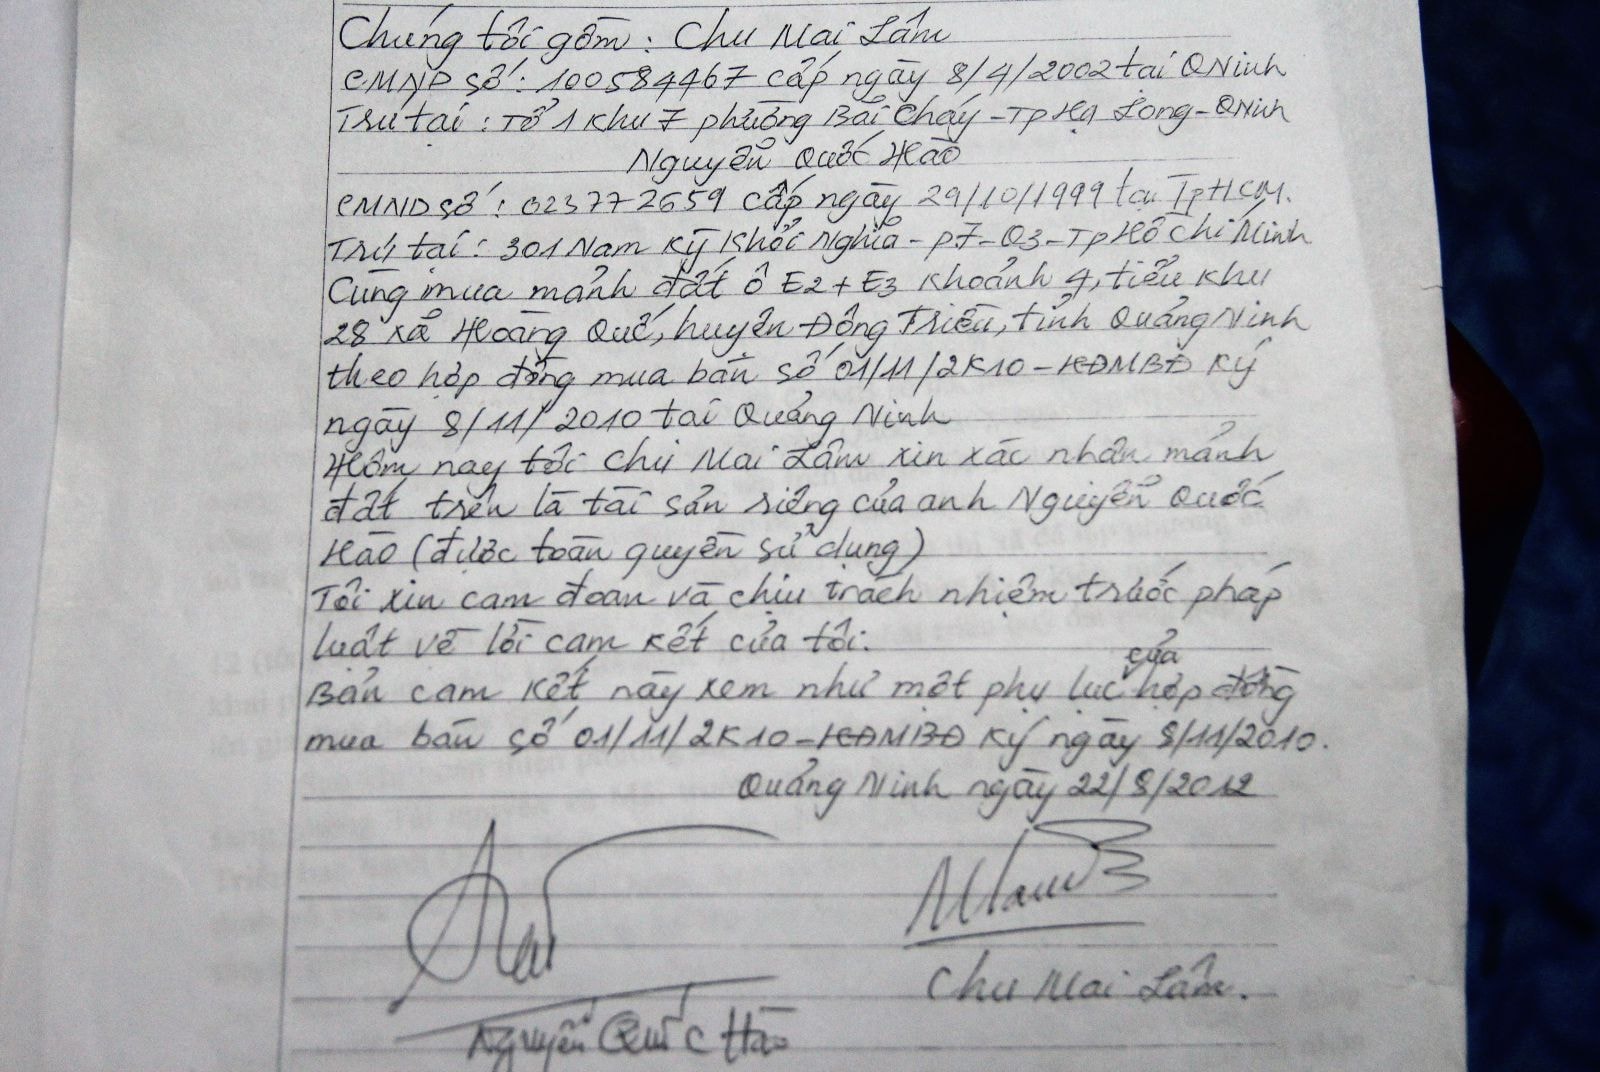 Chúng tôi gồm: Chu Mai Lâm
CMND số: 100584467 cấp ngày 8/4/2002 tại QNinh
Trú tại: Tổ 1 khu 7 phường Bãi Cháy - TP Hạ Long - QNinh
Nguyễn Quốc Hào
CMND số: 023772659 cấp ngày 29/10/1999 tại TpHCM.
Trú tại: 301 Nam Kỳ Khởi Nghĩa - P7 - Q3 - Tp Hồ Chí Minh
Cùng mua mảnh đất ô E2 + E3 khoảnh 4, tiểu khu
28 xã Hoàng Quế, huyện Đông Triều, tỉnh Quảng Ninh
theo hợp đồng mua bán số 01/11/2K10 - HĐMBĐ ký
ngày 8/11/2010 tại Quảng Ninh
Hôm nay tôi Chu Mai Lâm xin xác nhận mảnh
đất trên là tài sản riêng của anh Nguyễn Quốc
Hào (được toàn quyền sử dụng)
Tôi xin cam đoan và chịu trách nhiệm trước pháp
luật về lời cam kết của tôi.
Bản cam kết này xem như một phụ lục của hợp đồng
mua bán số 01/11/2K10 - HĐMBĐ ký ngày 8/11/2010.
Quảng Ninh ngày 22/8/2012
Chu Mai Lâm.
Nguyễn Quốc Hào